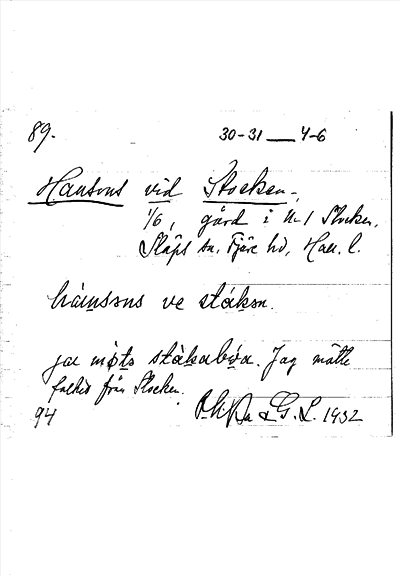 89. 30-31 — 4-6
Hansons vid Stocken,
1/6, gård i nr 1 Stocken,
Släps sn, Fjäre hd, Hall. l.
hánsons ve stákan.
ja møts stàkabøa. Jag mötte
folket från Stocken.
94 & G. L. 1932